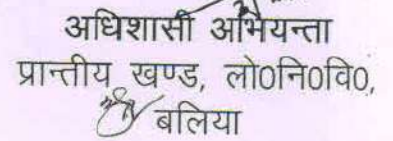 अधिशासी अभियन्ता
प्रान्तीय खण्ड, लो0नि0वि0,
बलिया